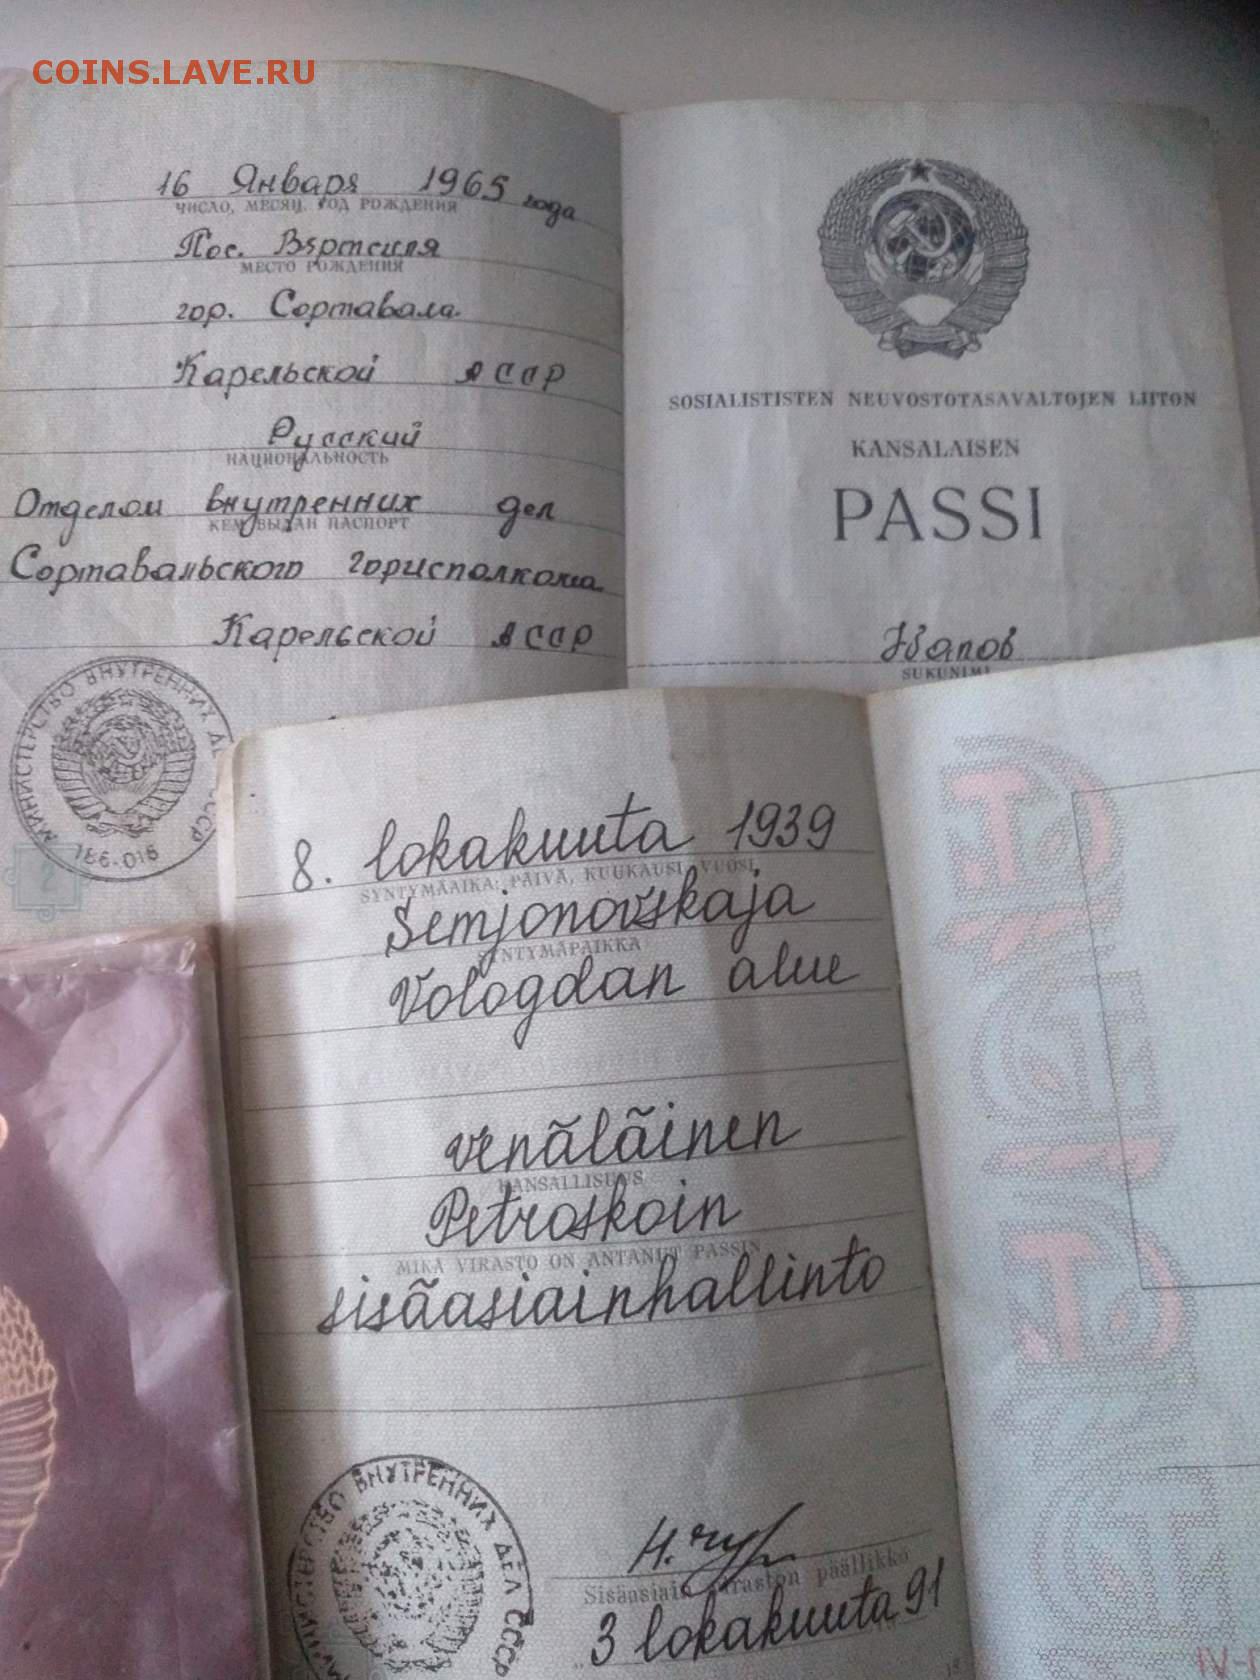 COINS.LAVE.RU
16 Января 1965 года
ЧИСЛО, МЕСЯЦ, ГОД РОЖДЕНИЯ
Пос. Вяртсиля
МЕСТО РОЖДЕНИЯ
гор. Сортавала
Карельской АССР
Русский
НАЦИОНАЛЬНОСТЬ
Отделом внутренних дел
КЕМ ВЫДАН ПАСПОРТ
Сортавальского горисполкома
Карельской АССР
МИНИСТЕРСТВО ВНУТРЕННИХ ДЕЛ СССР
186-016
2
SOSIALISTISTEN NEUVOSTOTASAVALTOJEN LIITON
KANSALAISEN
PASSI
SUKUNIMI
8. lokakuuta 1939
SYNTYMÄAIKA: PÄIVÄ, KUUKAUSI, VUOSI
Semjonovskaja
SYNTYMÄPAIKKA
Vologdan alue
venäläinen
KANSALLISUUS
Petroskoin
MIKÄ VIRASTO ON ANTANUT PASSIN
sisäasiainhallinto
МИНИСТЕРСТВО ВНУТРЕННИХ ДЕЛ СССР
Sisäasiain viraston päällikkö
3 lokakuuta 91